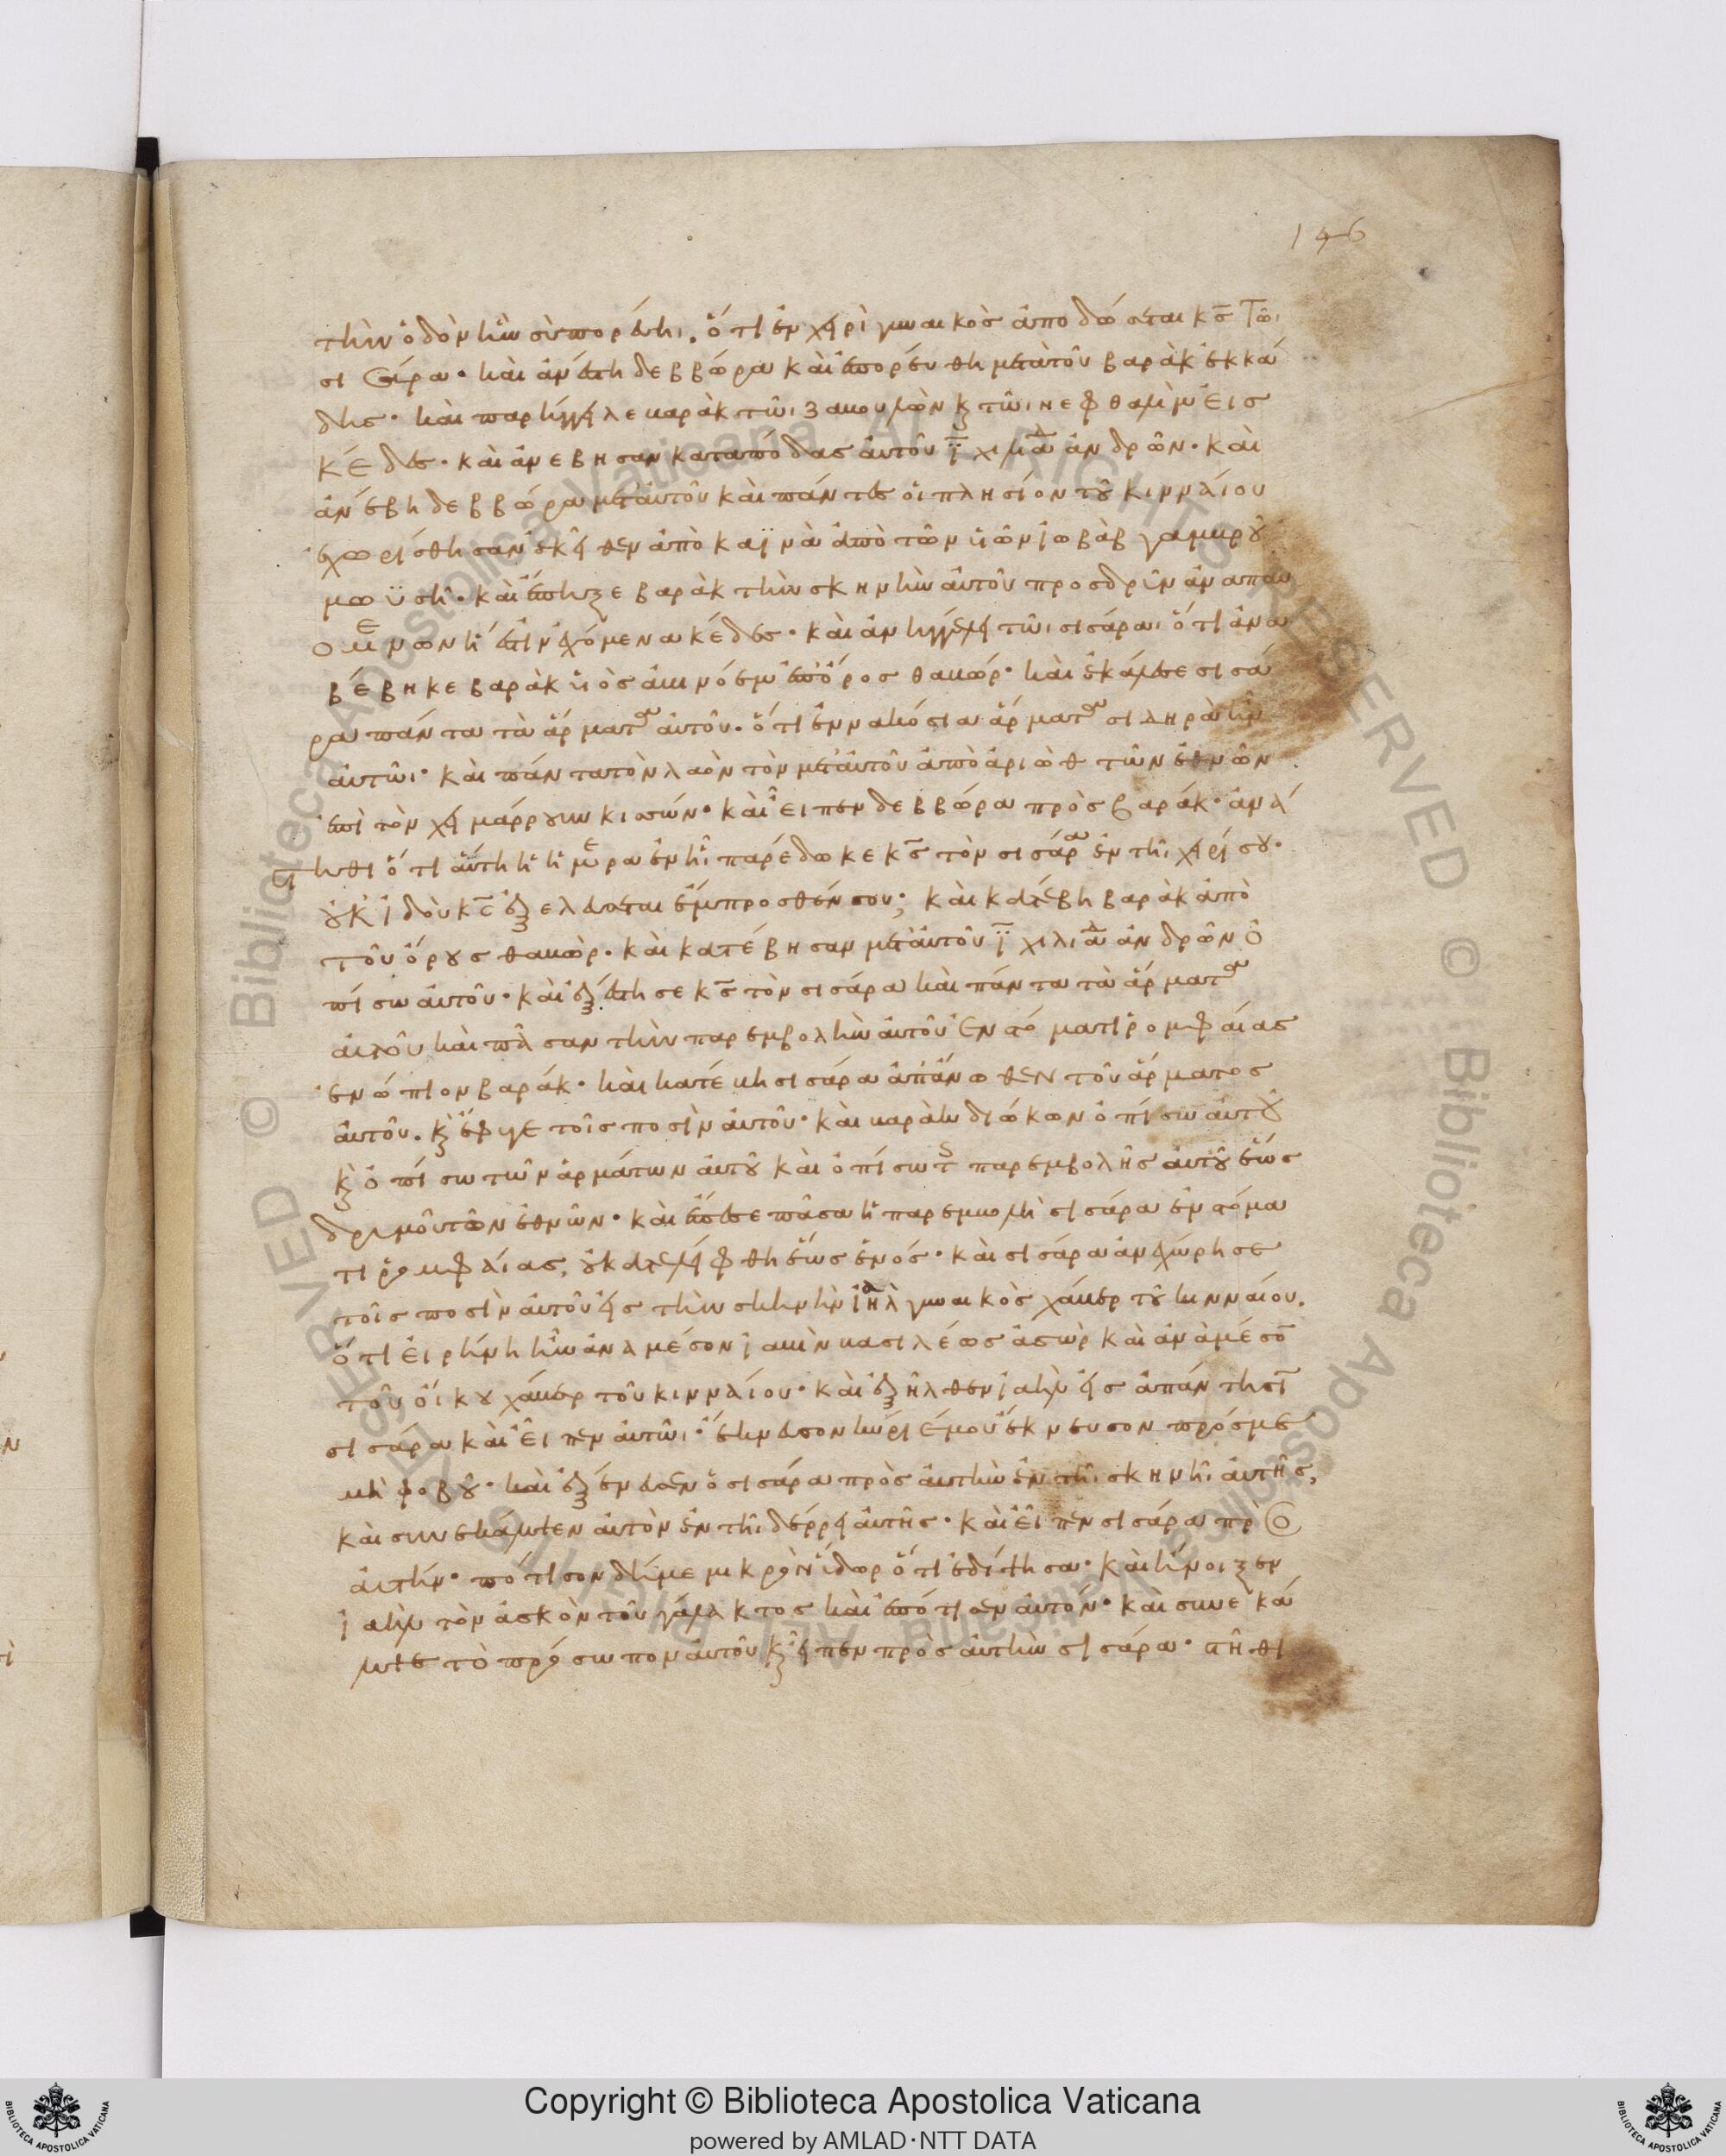 146
τὴν ὁδὸν ἣν σὺ πορεύηι. ὅτι ἐν χειρὶ γυναικὸς ἀποδώσεται κ̅ς̅ τῶι
σισάρα· καὶ ἀνέστη δεββώρα καὶ ἐπορεύθη μετὰ τοῦ βαρὰκ ἐκ κά
δης· καὶ παρήγγειλε βαρὰκ τῶι ζαβουλὼν κ τῶι νεφθαλὶμ εἰς
κέδες· καὶ ἀνέβησαν κατὰ πόδας αὐτοῦ ι̅ χιλιάδ ἀνδρῶν· καὶ
ἀνέβη δεββώρα μετ' αὐτοῦ καὶ πάντες οἱ πλησίον τοῦ κινναίου
ἐχωρίσθησαν ἐκεῖθεν ἀπὸ καϊνὰ ἀπὸ τῶν υἱῶν ἰωβὰβ γαμβροῦ
μωϋσῆ· καὶ ἔπηξε βαρὰκ τὴν σκηνὴν αὐτοῦ πρὸς δρῦν ἀναπαυ
ομενων ἥ ἐστιν ἐχόμενα κέδες· καὶ ἀνηγγέλη τῶι σισάραι ὅτι ἀνα
βέβηκε βαρὰκ υἱὸς ἀβινόεμ ἐπ' ὄρος θαβώρ· καὶ ἐκάλεσε σισά
ρα πάντα τὰ ἅρματα αὐτοῦ. ὅτι ἐννακόσια ἅρματα σιδηρᾶ ἦν
αὐτῶι· καὶ πάντα τὸν λαὸν τὸν μετ' αὐτοῦ ἀπὸ ἀριὼθ τῶν ἐθνῶν
ἐπὶ τὸν χειμάρρουν κισών· καὶ εἶπεν δεββώρα πρὸς βαράκ· ἀνά
στηθι ὅτι αὕτη ἡ ἡμέρα ἐν ἧι παρέδωκε κ̅ς̅ τὸν σισάρα ἐν τῆι χειρί σου·
οὐκ ἰδοὺ κ̅ς̅ ἐξελεύσεται ἔμπροσθέν σου; καὶ κατέβη βαρὰκ ἀπὸ
τοῦ ὄρους θαβώρ· καὶ κατέβησαν μετ' αὐτοῦ ι̅ χιλιάδ ἀνδρῶν ὀ
πίσω αὐτοῦ· καὶ ἐξέστησε κ̅ς̅ τὸν σισάρα καὶ πάντα τὰ ἅρματα
αὐτοῦ καὶ πᾶσαν τὴν παρεμβολὴν αὐτοῦ ἐν στόματι ῥομφαίας
ἐνώπιον βαράκ· καὶ κατέβη σισάρα ἀπάνωθεν τοῦ ἅρματος
αὐτοῦ. κ ἔφυγε τοῖς ποσὶν αὐτοῦ· καὶ βαρὰκ διώκων ὀπίσω αὐτοῦ
κ ὀπίσω τῶν ἁρμάτων αὐτοῦ καὶ ὀπίσω τς παρεμβολῆς αὐτοῦ ἕως
δρυμοῦ τῶν ἐθνῶν· καὶ ἔπεσε πᾶσα ἡ παρεμβολὴ σισάρα ἐν στόμα
τι ῥομφαίας, οὐ κατελείφθη ἕως ἑνός· καὶ σισάρα ἀνεχώρησε
τοῖς ποσὶν αὐτοῦ εἰς τὴν σκηνὴν ἰαὴλ γυναικὸς χάβερ τοῦ κινναίου.
ὅτι εἰρήνη ἦν ἀνὰ μέσον ἰαβὶν βασιλέως ἀσὼρ καὶ ἀνὰ μέσο̅
τοῦ οἴκου χάβερ τοῦ κινναίου· καὶ ἐξῆλθεν ἰαὴλ εἰς ἀπάντησι̅
σισάρα καὶ εἶπεν αὐτῶι· ἔκνευσον κύριέ μου ἔκνευσον πρός με
μὴ φοβοῦ· καὶ ἐξένευσεν ὁ σισάρα πρὸς αὐτὴν ἐν τῆι σκηνῆι αὐτῆς,
καὶ συνεκάλυψεν αὐτὸν ἐν τῆι δέρρει αὐτῆς· καὶ εἶπεν σισάρα πρὸ
αὐτήν· πότισον δή με μικρὸν ὕδωρ ὅτι ἐδίψησα· καὶ ἤνοιξεν
ἰαὴλ τὸν ἀσκὸν τοῦ γάλακτος καὶ ἐπότισεν αὐτόν· καὶ συνεκά
λυψε τὸ πρόσωπον αὐτοῦ κ εἶπεν πρὸς αὐτὴν σισάρα· στῆθι
© Biblioteca Apostolica Vaticana ALL RIGHTS RESERVED
© Biblioteca Apostolica Vaticana ALL RIGHTS RESERVED
Copyright © Biblioteca Apostolica Vaticana
powered by AMLAD·NTT DATA
BIBLIOTECA APOSTOLICA VATICANA
BIBLIOTECA APOSTOLICA VATICANA